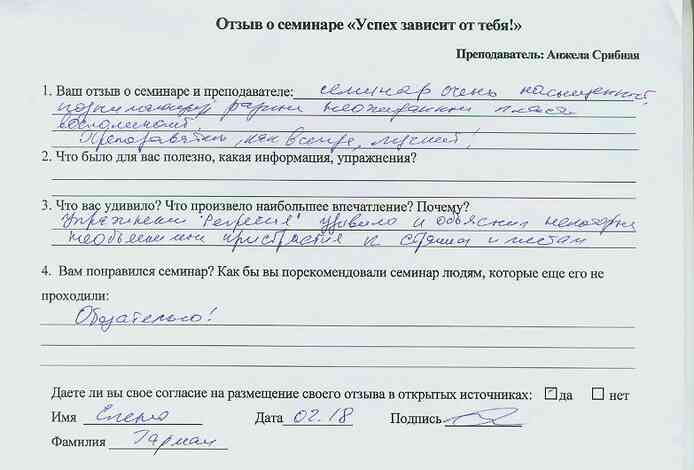 Отзыв о семинаре «Успех зависит от тебя!»
Преподаватель: Анжела Срибная
1. Ваш отзыв о семинаре и преподавателе: семинар очень насыщенный,
неожиданные пласты
воспоминаний.
Преподаватель, как всегда, лучший!
2. Что было для вас полезно, какая информация, упражнения?
3. Что вас удивило? Что произвело наибольшее впечатление? Почему?
Упражнение "Регрессия" удивило и объяснил некоторые
необъяснимые пристрастия к странам и местам
4. Вам понравился семинар? Как бы вы порекомендовали семинар людям, которые еще его не
проходили:
Обязательно!
Даете ли вы свое согласие на размещение своего отзыва в открытых источниках: ☑ да ☐ нет
Имя Елена Дата 02.18 Подпись
Фамилия Гарман